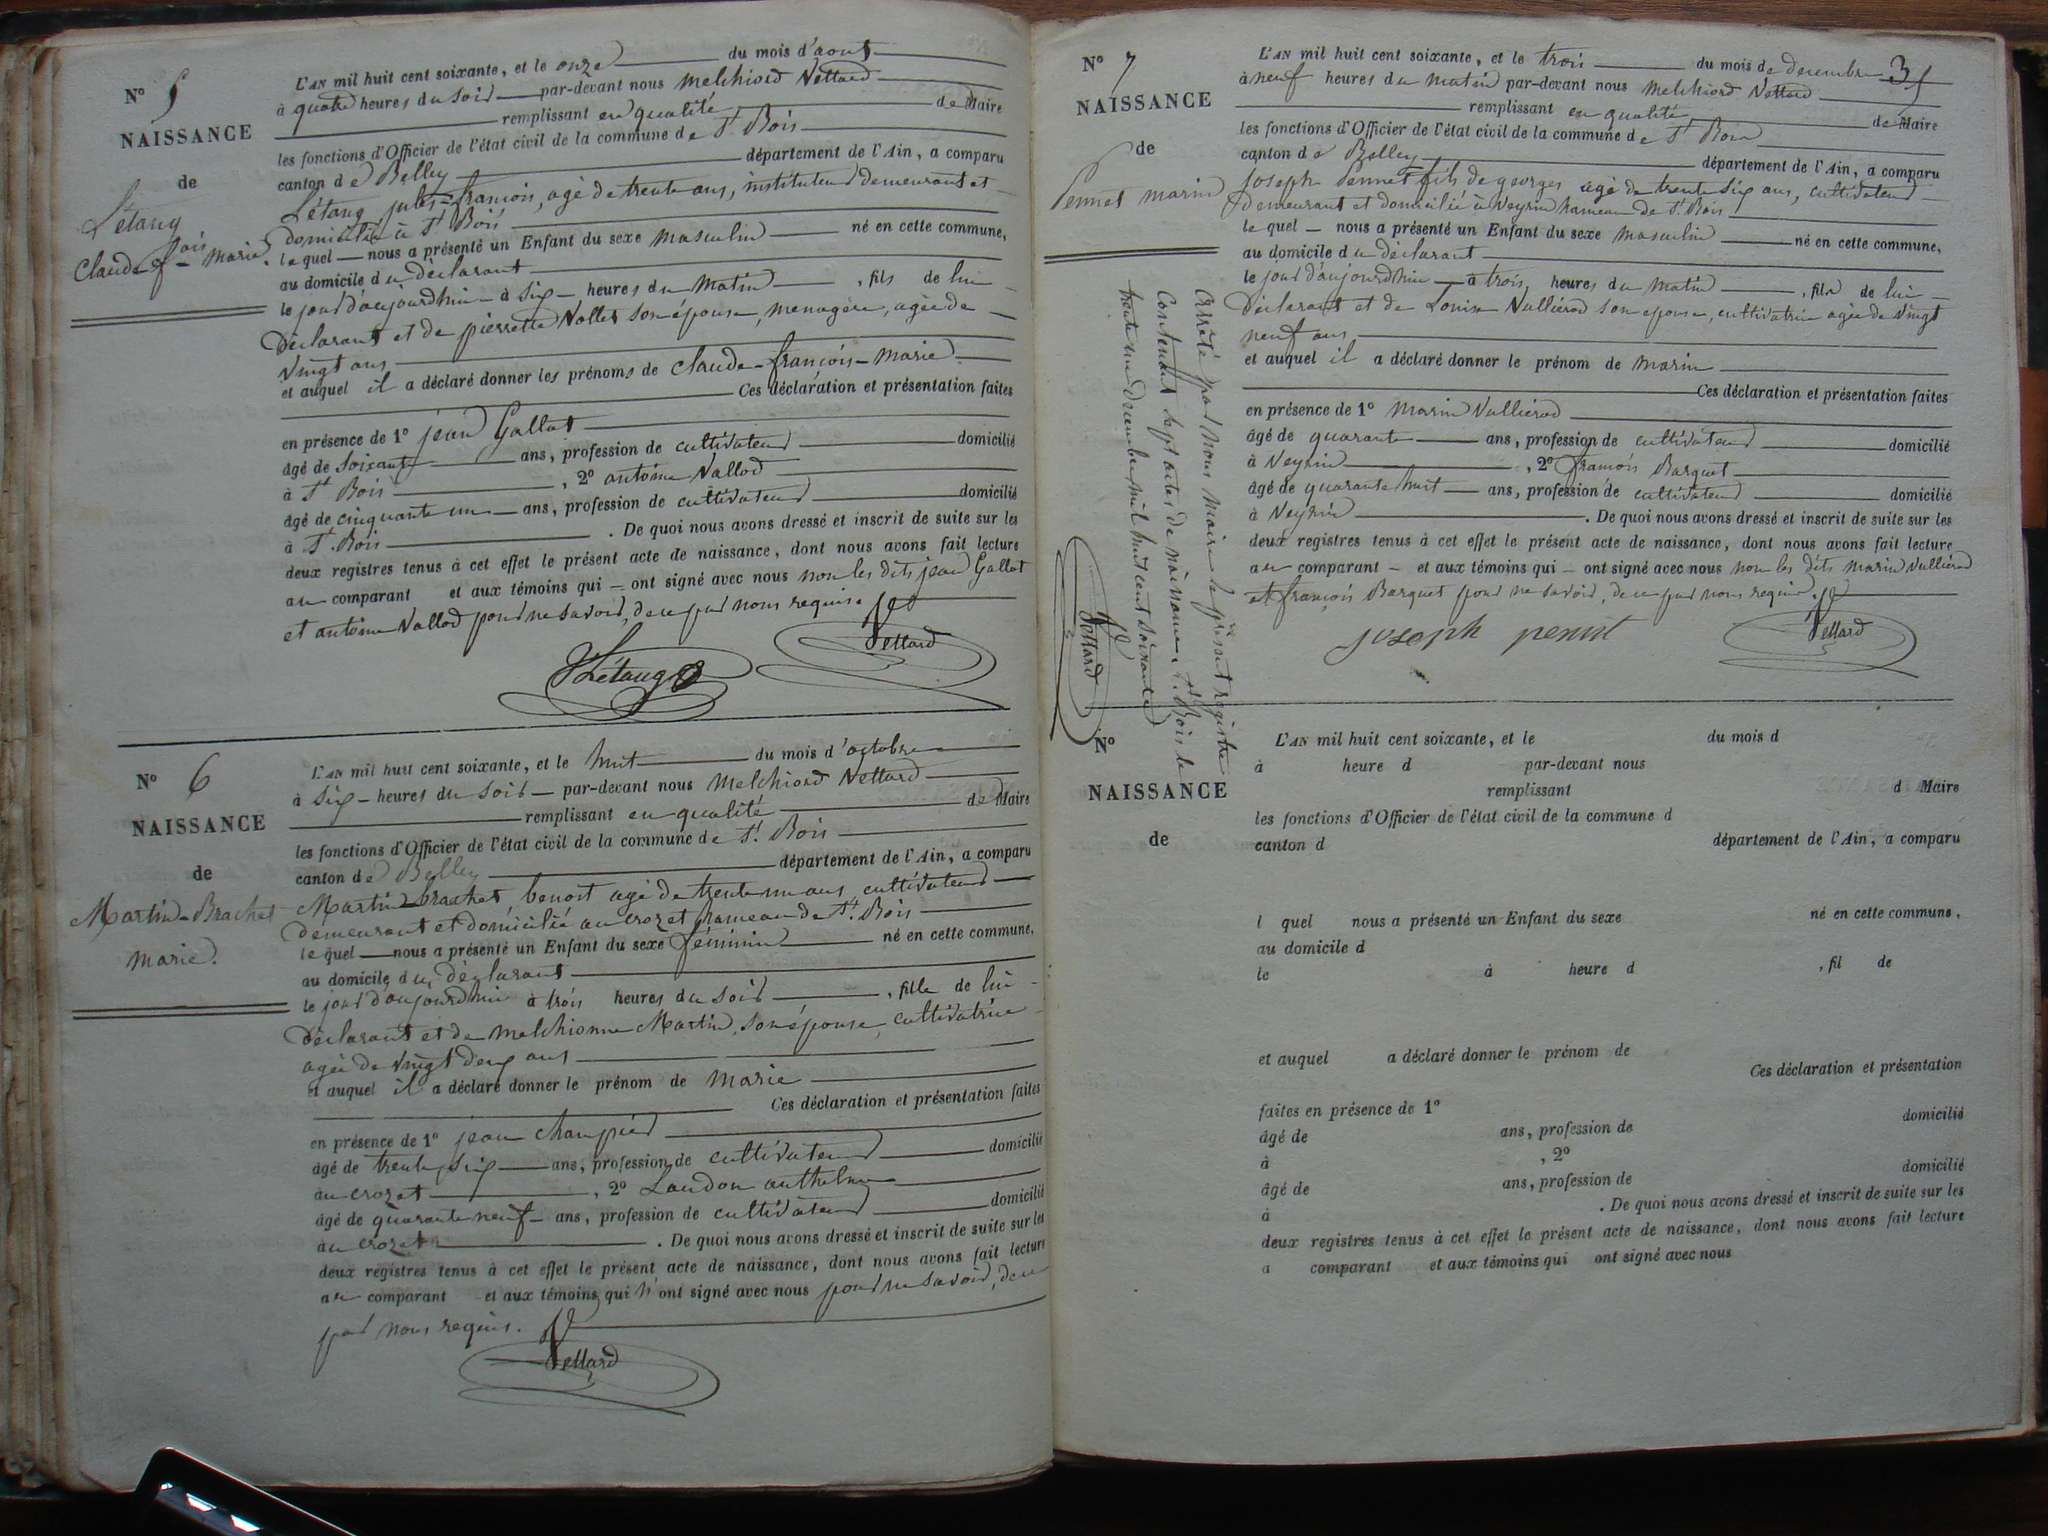 N° 5
NAISSANCE
de
Létang
Claude-fois-marie.
L'AN mil huit cent soixante, et le onze du mois d'aout
à quatre heures du soir par-devant nous melchiord Vettard
remplissant en qualité de Maire
les fonctions d'Officier de l'état civil de la commune de St Bois
canton de Belley département de l'Ain, a comparu
Létang jules-françois, agé de trente ans, instituteur demeurant et
domicilié à St Bois
le quel nous a présenté un Enfant du sexe masculin né en cette commune,
au domicile du déclarant
le jour d'aujourdhui à six heures du matin , fils de lui
déclarant et de pierrette Vollet son épouse, menagère, agée de
vingt ans
et auquel il a déclaré donner les prénoms de claude-françois-marie.
Ces déclaration et présentation faites
en présence de 1° jean Gallat
âgé de soixante ans, profession de cultivateur domicilié
à St Bois , 2° antoine Vallod
âgé de cinquante un ans, profession de cultivateur domicilié
à St Bois . De quoi nous avons dressé et inscrit de suite sur les
deux registres tenus à cet effet le présent acte de naissance, dont nous avons fait lecture
au comparant et aux témoins qui ont signé avec nous non les dits jean Gallat
et antoine Vallod pour ne savoir, de ce par nous requis.
Létang
Vettard
N° 6
NAISSANCE
de
Martin-Brachet
marie.
L'AN mil huit cent soixante, et le huit du mois d'octobre
à six heures du soir par-devant nous melchiord Vettard
remplissant en qualité de Maire
les fonctions d'Officier de l'état civil de la commune de St Bois
canton de Belley département de l'Ain, a comparu
Martin-brachet, benoit agé de trente un ans, cultivateur
demeurant et domicilié au crozet hameau de St Bois
le quel nous a présenté un Enfant du sexe féminin né en cette commune,
au domicile du déclarant
le jour d'aujourdhui à trois heures du soir , fille de lui
déclarant et de melchionne Martin, son épouse, cultivatrice
agée de vingt deux ans
et auquel il a déclaré donner le prénom de marie
Ces déclaration et présentation faites
en présence de 1° jean champier
âgé de trente six ans, profession de cultivateur domicilié
au crozet , 2° Landon anthelme
âgé de quarante neuf ans, profession de cultivateur domicilié
au crozet . De quoi nous avons dressé et inscrit de suite sur les
deux registres tenus à cet effet le présent acte de naissance, dont nous avons fait lecture
au comparant et aux témoins qui n'ont signé avec nous pour ne savoir, de ce
par nous requis.
Vettard
N° 7
NAISSANCE
de
Pennet marin
35
L'AN mil huit cent soixante, et le trois du mois de decembre
à neuf heures du matin par-devant nous melchiord Vettard
remplissant en qualité de Maire
les fonctions d'Officier de l'état civil de la commune de St Bois
canton de Belley département de l'Ain, a comparu
Joseph Pennet fils de georges agé de trente six ans, cultivateur
demeurant et domicilié à Veyrin hameau de St Bois
le quel nous a présenté un Enfant du sexe masculin né en cette commune,
au domicile du déclarant
le jour d'aujourdhui à trois heures du matin , fils de lui
déclarant et de Louise Vulliérod son épouse, cultivatrice agée de vingt
neuf ans
et auquel il a déclaré donner le prénom de marin
Ces déclaration et présentation faites
en présence de 1° marin Vulliérod
âgé de quarante ans, profession de cultivateur domicilié
à Veyrin , 2° françois Barquet
âgé de quarante huit ans, profession de cultivateur domicilié
à Veyrin . De quoi nous avons dressé et inscrit de suite sur les
deux registres tenus à cet effet le présent acte de naissance, dont nous avons fait lecture
au comparant et aux témoins qui ont signé avec nous non les dits marin Vulliérod
et françois Barquet pour ne savoir, de ce par nous requis.
joseph penut
Vettard
Arrêté par nous maire le présent registre
Contenant sept actes de naissance, à St Bois le
trente un decembre mil huit cent soixante
Vettard
N°
NAISSANCE
de
L'AN mil huit cent soixante, et le du mois d
à heure d par-devant nous
remplissant d Maire
les fonctions d'Officier de l'état civil de la commune d
canton d département de l'Ain, a comparu
l quel nous a présenté un Enfant du sexe né en cette commune,
au domicile d
le à heure d , fil de
et auquel a déclaré donner le prénom de
Ces déclaration et présentation
faites en présence de 1°
âgé de ans, profession de domicilié
à , 2°
âgé de ans, profession de domicilié
à . De quoi nous avons dressé et inscrit de suite sur les
deux registres tenus à cet effet le présent acte de naissance, dont nous avons fait lecture
a comparant et aux témoins qui ont signé avec nous